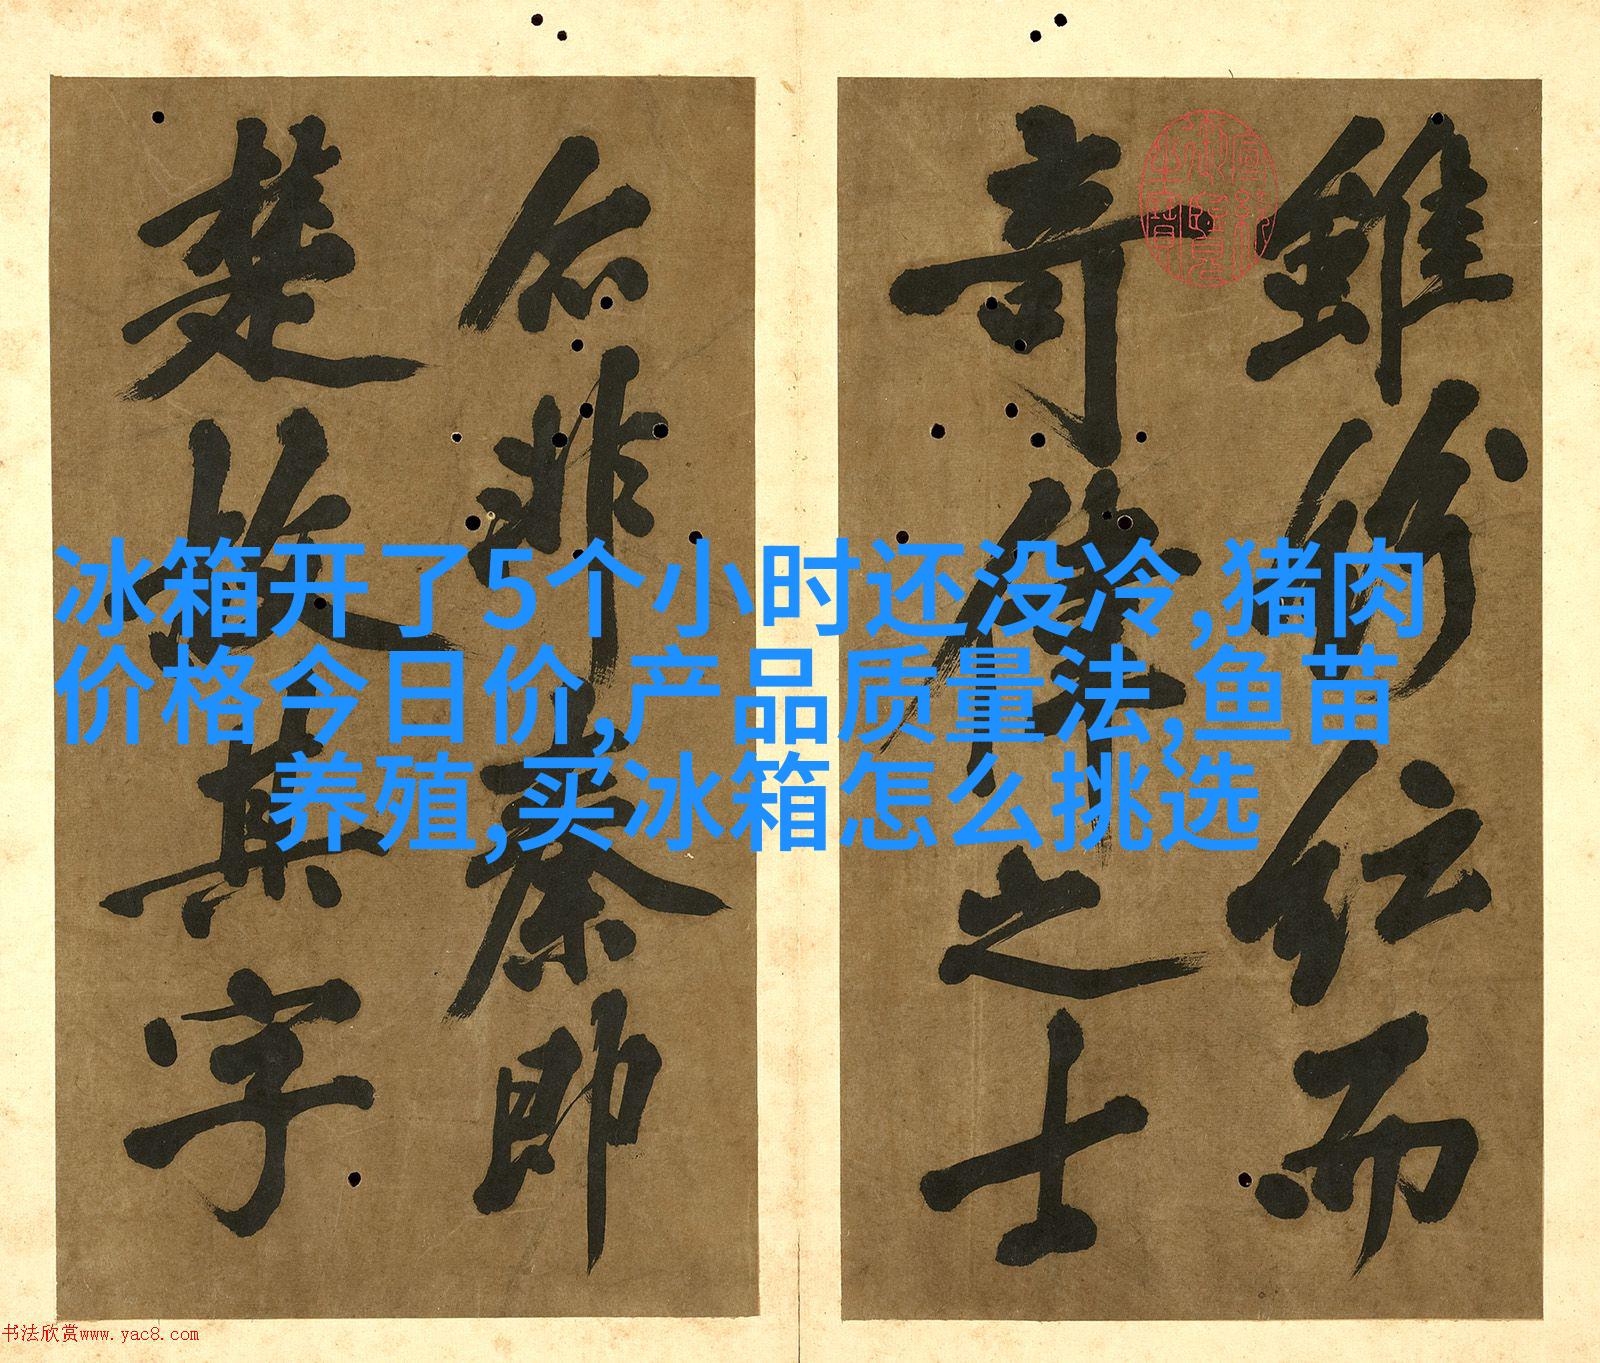 冰箱开了5个小时还没冷,猪肉
价格今日价,产品质量法,鱼苗
养殖,买冰箱怎么挑选
雖而
奇偉之士
非秦即
楚故其字
书法欣赏www.yac8.com